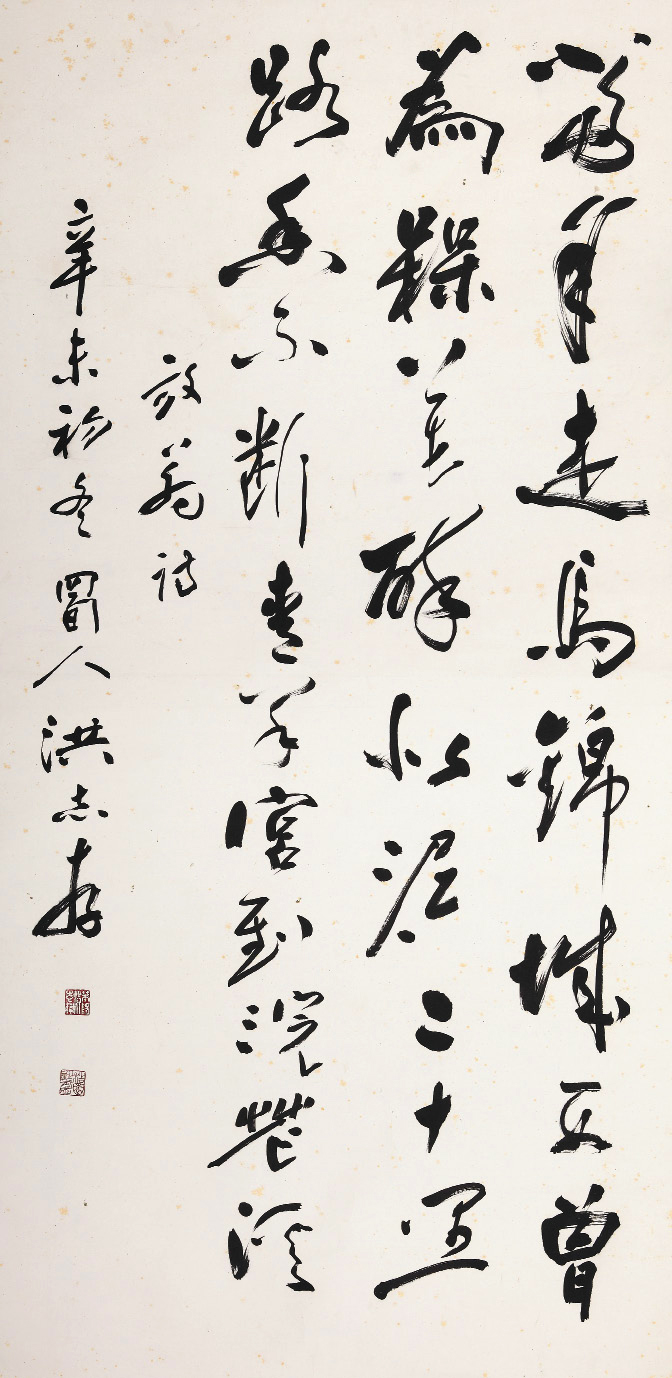 當年走馬錦城西曾
為槑花醉似泥二十里
路香不断青羊宮到浣花溪
放翁詩
辛未初冬蜀人洪志存